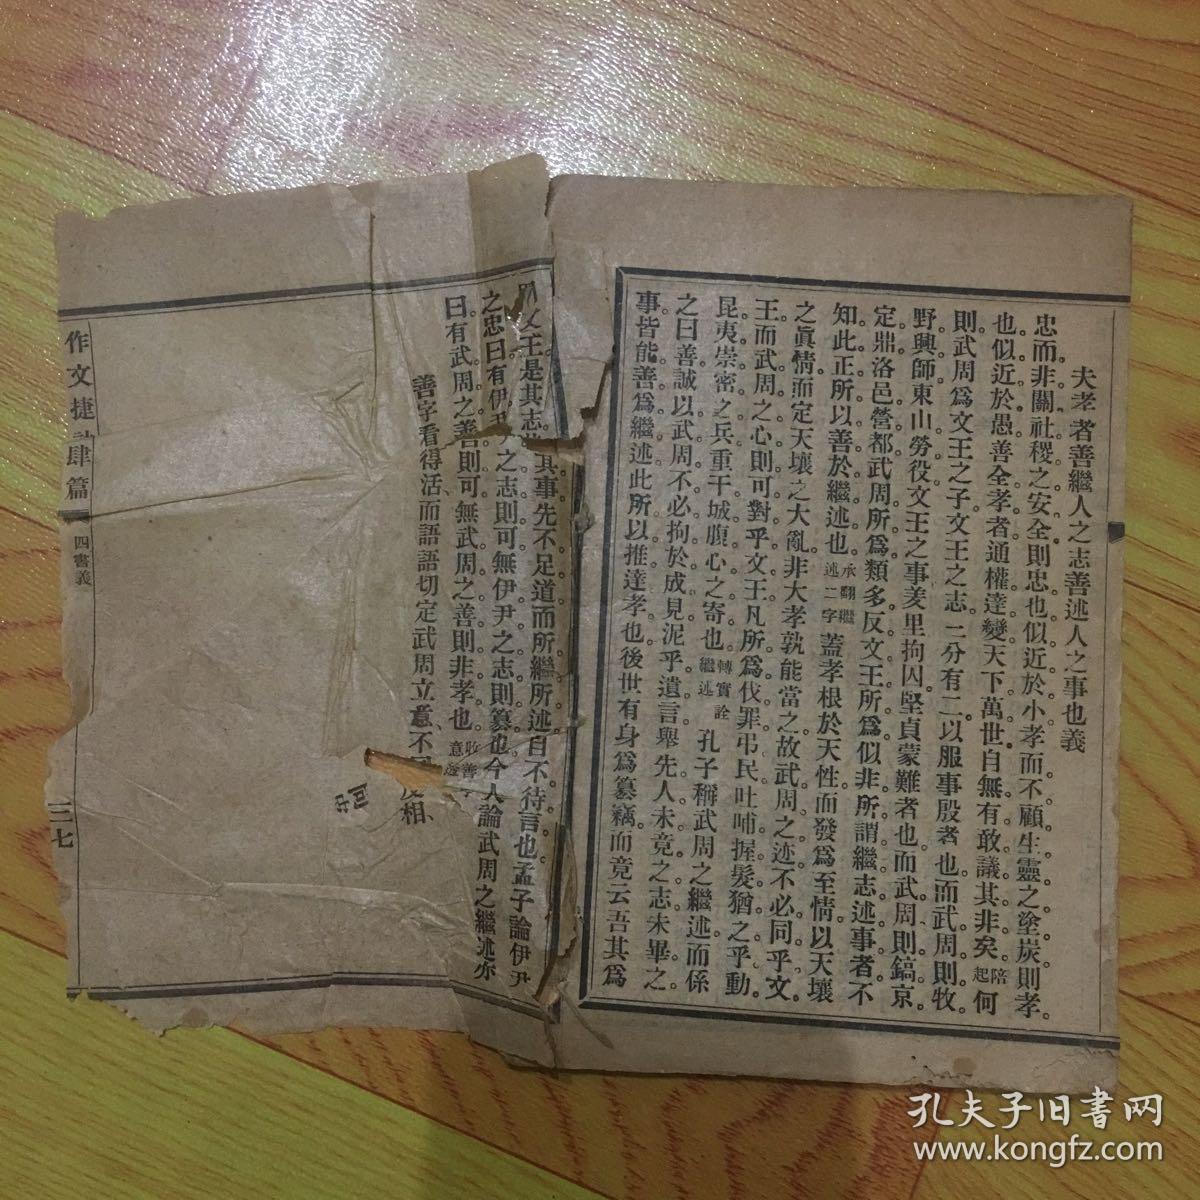 夫孝者善繼人之志善述人之事也義
忠而非關社稷之安全則忠也似近於小孝而不顧生靈之塗炭則孝
也似近於愚善全孝者通權達變天下萬世自無有敢議其非矣陪起何
則武周爲文王之子文王之志二分有二以服事殷者也而武周則牧
野興師東山勞役文王之事羑里拘囚堅貞蒙難者也而武周則鎬京
定鼎洛邑營都武周所爲類多反文王所爲似非所謂繼志述事者不
知此正所以善於繼述也承翻繼述二字蓋孝根於天性而發爲至情以天壤
之眞情而定天壤之大亂非大孝孰能當之故武周之迹不必同乎文
王而武周之心則可對乎文王凡所爲伐罪弔民吐哺握髮猶之乎動
昆夷崇密之兵重干城腹心之寄也轉實詮繼述孔子稱武周之繼述而係
之曰善誠以武周不必拘於成見泥乎遺言舉先人未竟之志未畢之
事皆能善爲繼述此所以推達孝也後世有身爲篡竊而竟云吾其爲
文王是其志其事先不足道而所繼所述自不待言也孟子論伊尹
之忠曰有伊尹之志則可無伊尹之志則篡也今人論武周之繼述亦
曰有武周之善則可無武周之善則非孝也收善意
善字看得活而語語切定武周立意不相
作文捷肆篇
四書義
三七
孔夫子旧书网
www.kongfz.com